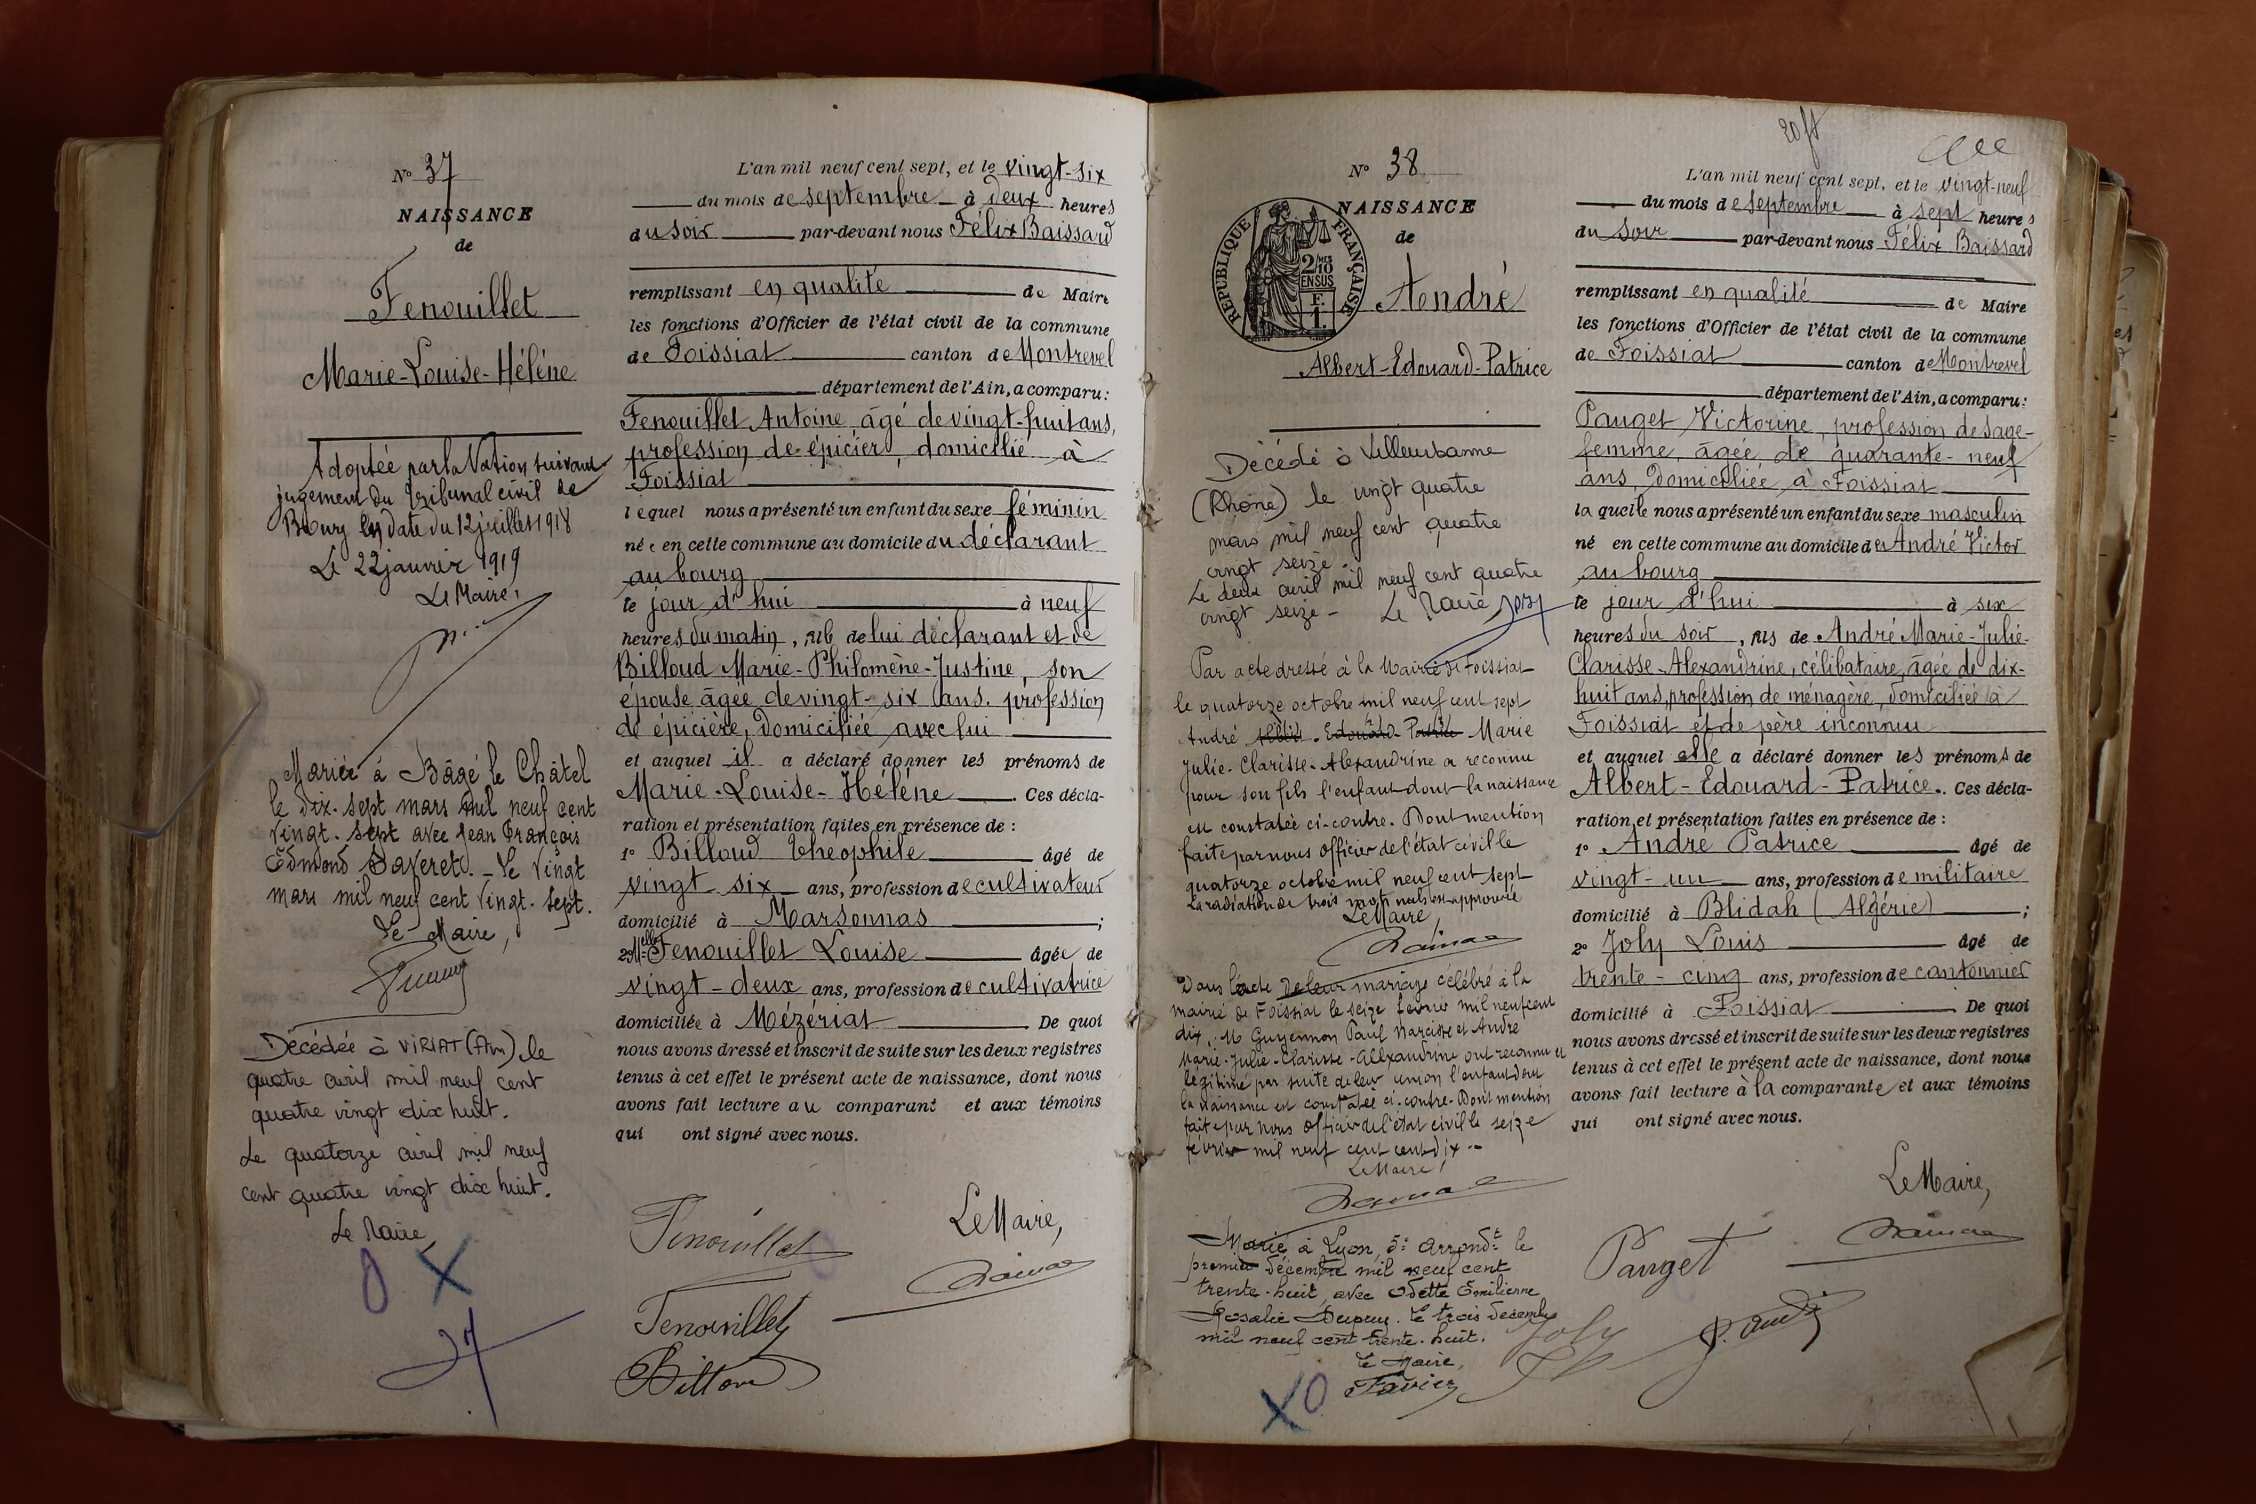 N° 37
NAISSANCE
de
Fenouillet
Marie-Louise-Hélène
Adoptée par la Nation suivant
jugement du tribunal civil de
Bourg en date du 12 juillet 1918
Le 22 janvier 1919
Le Maire,
Mariée à Bâgé le Châtel
le dix-sept mars mil neuf cent
vingt-sept avec Jean François
Edmond Daveret. - Le vingt
mars mil neuf cent vingt-sept.
Le Maire,
Décédée à VIRIAT (Ain) le
quatre avril mil neuf cent
quatre vingt dix huit.
Le quatorze avril mil neuf
cent quatre vingt dix huit.
Le Maire,
L'an mil neuf cent sept, et le vingt-six
du mois de septembre à deux heures
du soir par-devant nous Félix Baissard
remplissant en qualité de Maire
les fonctions d'Officier de l'état civil de la commune
de Foissiat canton de Montrevel
département de l'Ain, a comparu:
Fenouillet Antoine, âgé de vingt-huit ans,
profession de épicier, domicilié à
Foissiat
lequel nous a présenté un enfant du sexe féminin
née en cette commune au domicile du déclarant
au bourg
le jour d'hui à neuf
heures du matin, fils de lui déclarant et de
Billoud Marie-Philomène-Justine, son
épouse âgée de vingt-six ans. profession
de épicière, domiciliée avec lui
et auquel il a déclaré donner les prénoms de
Marie-Louise-Hélène. Ces décla-
ration et présentation faites en présence de :
1° Billoud Théophile âgé de
vingt six ans, profession de cultivateur
domicilié à Marsonnas ;
2° Melle Fenouillet Louise âgée de
vingt-deux ans, profession de cultivatrice
domiciliée à Mézériat. De quoi
nous avons dressé et inscrit de suite sur les deux registres
tenus à cet effet le présent acte de naissance, dont nous
avons fait lecture au comparant et aux témoins
qui ont signé avec nous.
Le Maire,
Fenouillet
Fenouillet
Billoud
N° 38
NAISSANCE
de
RÉPUBLIQUE FRANÇAISE
2/10 MES
EN SUS
F.
1.
André
Albert-Edouard-Patrice
Décédé à Villeurbanne
(Rhône) le vingt quatre
mars mil neuf cent quatre
vingt seize.
Le deux avril mil neuf cent quatre
vingt seize - Le Maire
Par acte dressé à la Mairie de Foissiat
le quatorze octobre mil neuf cent sept
André Albert-Edouard-Patrice Marie
Julie-Clarisse-Alexandrine a reconnu
pour son fils l'enfant dont la naissance
est constatée ci-contre. Dont mention
faite par nous officier de l'état civil le
quatorze octobre mil neuf cent sept
La radiation de trois mots nuls est approuvée
Le Maire,
Dans l'acte de leur mariage célébré à la
mairie de Foissiat le seize février mil neuf cent
dix, M. Guyennon Paul Narcisse et André
Marie-Julie-Clarisse-Alexandrine ont reconnu et
légitimé par suite de leur union l'enfant dont
la naissance est constatée ci-contre. Dont mention
faite par nous officier de l'état civil le seize
février mil neuf cent cent dix.-
Le Maire,
Marié à Lyon, 5e arrondt le
premier décembre mil neuf cent
trente-huit, avec Odette Emilienne
Rosalie Dupuy. Le trois décembre
mil neuf cent trente-huit.
Le Maire,
Favier
L'an mil neuf cent sept, et le vingt-neuf
du mois de septembre à sept heures
du soir par-devant nous Félix Baissard
remplissant en qualité de Maire
les fonctions d'Officier de l'état civil de la commune
de Foissiat canton de Montrevel
département de l'Ain, a comparu:
Pauget Victorine, profession de sage-
femme, âgée de quarante-neuf
ans, domiciliée à Foissiat
laquelle nous a présenté un enfant du sexe masculin
né en cette commune au domicile de André Victor
au bourg
le jour d'hui à six
heures du soir, fils de André Marie-Julie-
Clarisse-Alexandrine, célibataire, âgée de dix-
huit ans, profession de ménagère, domiciliée à
Foissiat et de père inconnu
et auquel elle a déclaré donner les prénoms de
Albert-Edouard-Patrice. Ces décla-
ration et présentation faites en présence de :
1° André Patrice âgé de
vingt-un ans, profession de militaire
domicilié à Blidah (Algérie) ;
2° Joly Louis âgé de
trente-cinq ans, profession de cantonnier
domicilié à Foissiat. De quoi
nous avons dressé et inscrit de suite sur les deux registres
tenus à cet effet le présent acte de naissance, dont nous
avons fait lecture à la comparante et aux témoins
qui ont signé avec nous.
Le Maire,
Pauget
Joly
P. André